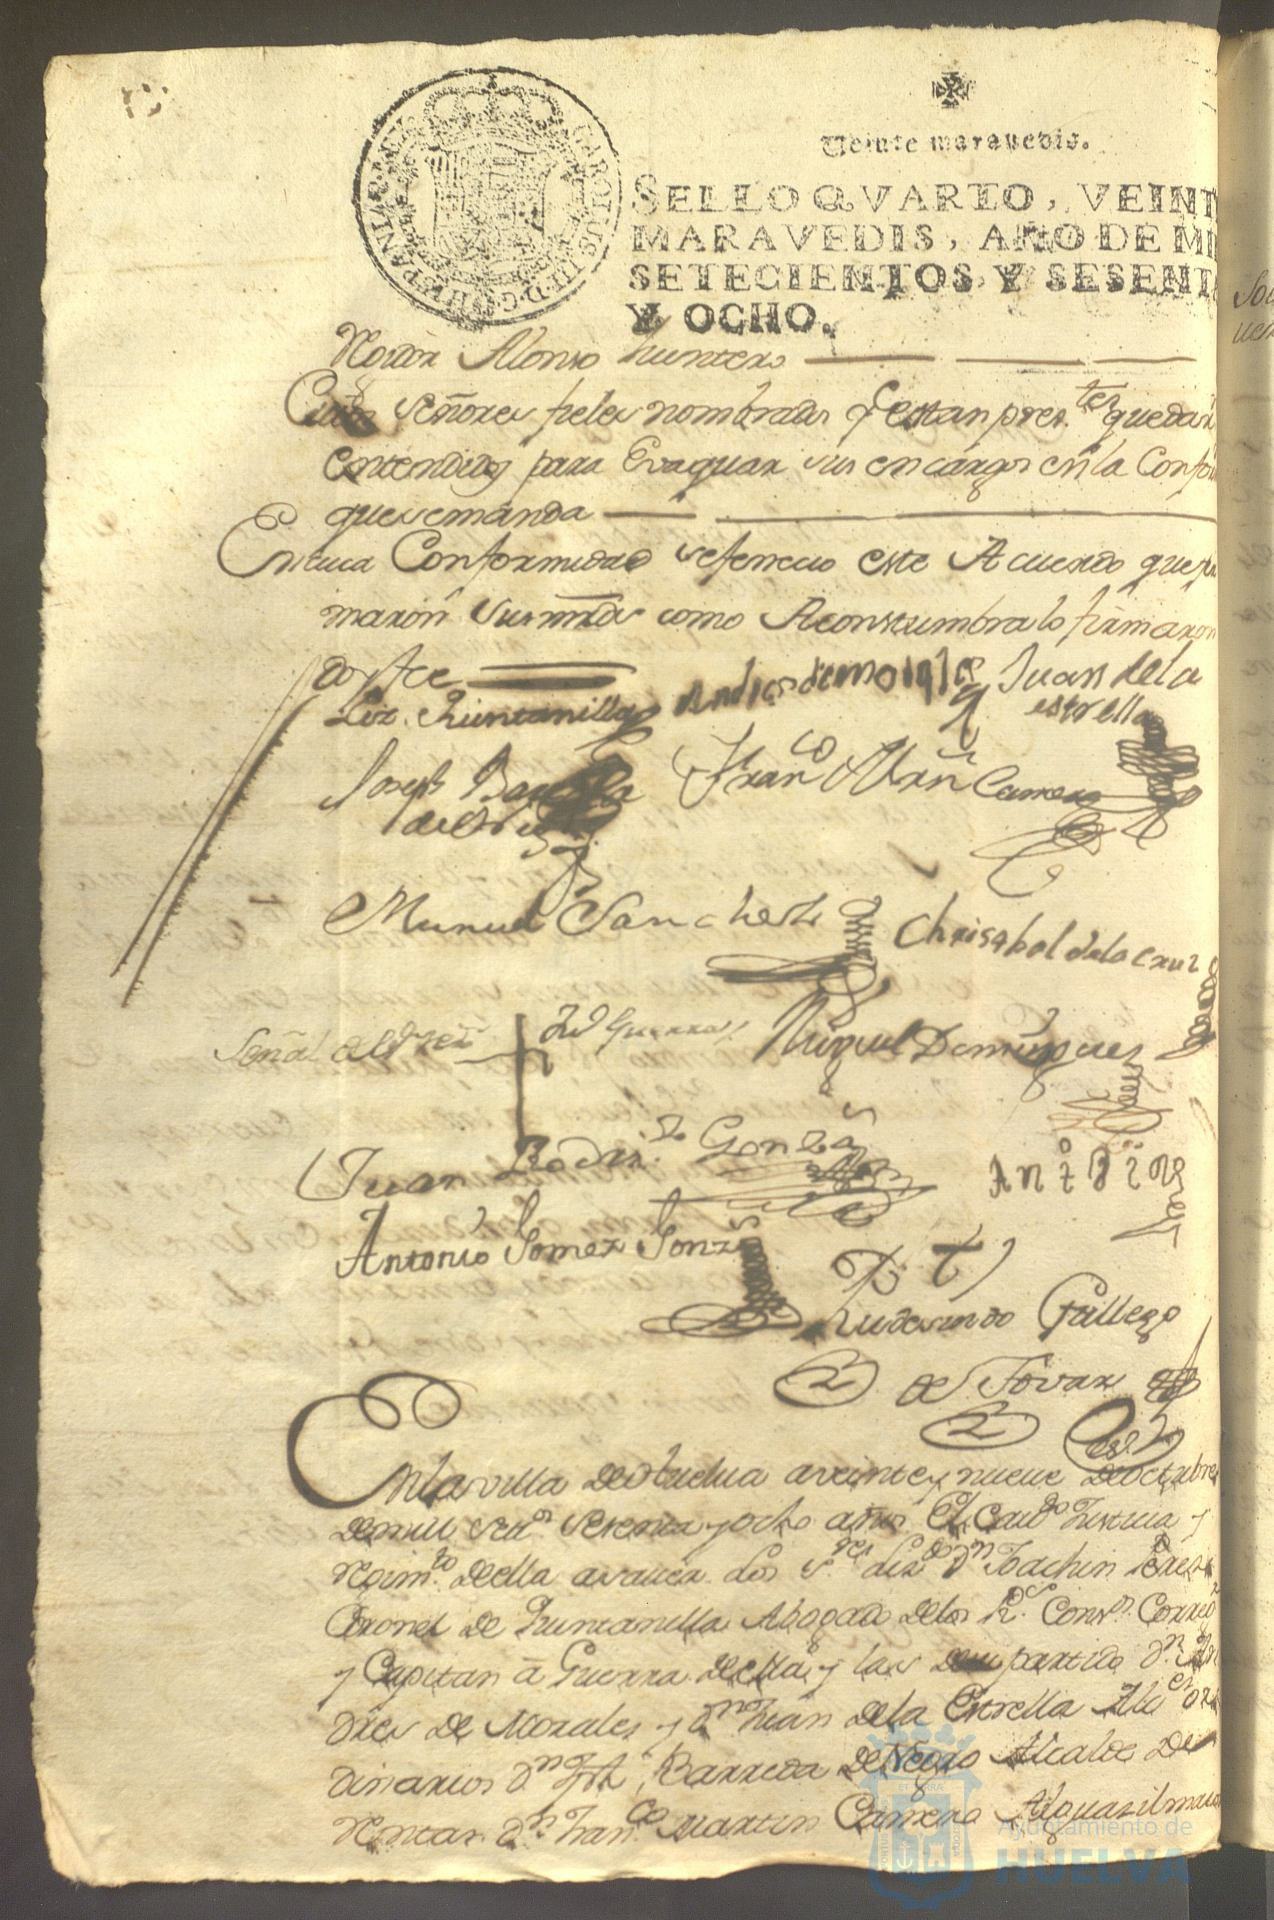 CAROLUS III D G HISPANIAR REX
Veinte maravedis.
SELLO QVARTO, VEINT
MARAVEDIS, AÑO DE MI
SETECIENTOS Y SESENT
Y OCHO.
Alonso Quintero
Cuios Señores fieles nombrados q estan pres.tes quedar
entendidos para Evaquar sus encargos en la Confor
que se manda
En cuia Conformidad se fenecio este Acuerdo que
maron sus mrds como Acostumbra lo firmaron
doy fee
Liz. Quintanilla Andres de morales Juan de la
estrella
Joseph Barreda
de
Fran.co Mrn Carrero
Manuel Sanchez Chrisabal de la Cruz
Señal de
Guerra Miguel Dominguez
Juan Rodri.z Gonz.s
Antonio Gomez Gonz.s
Rudesindo Gallego
de Tovar
Es.no
En la villa de Huelva a veinte y nueve de octubre
de mill set.s sesenta y ocho años El cavdo Justicia y
regim.to de ella a saver Los S.res Liz.do Dn Joachin
Coronel de Quintanilla Abogado de los R.s Cons.s Correx
y Capitan a Guerra de ella y las de su partido Dn An
dres de Morales y Dn Juan de la Estrella Alc.es or
dinarios Dn Jph Barreda de Alcalde de
Rentas Dn Fran.co Martin Carrero Alguasil maior
Ayuntamiento de
HUELVA